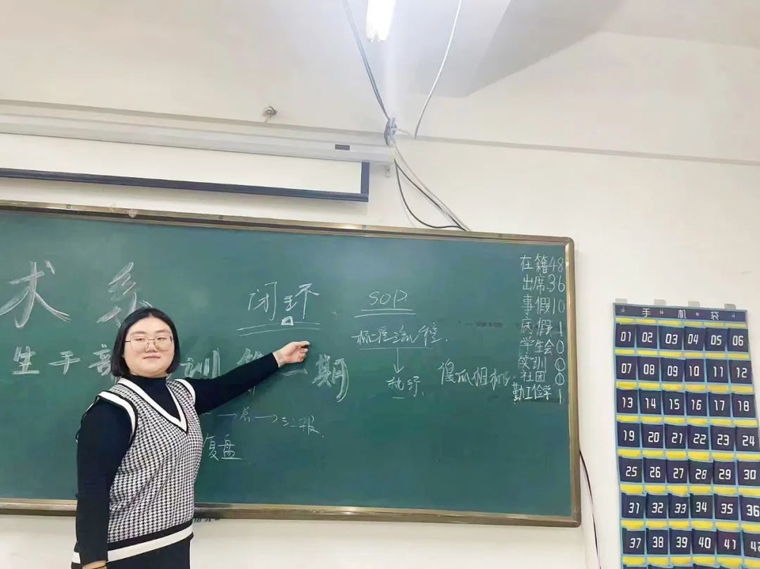 术系
生干部 训 第二期
闭环
SOP
执行
汇报
复盘
在籍48
出席36
事假10
病假1
学生会0
实训0
社团0
勤工俭学1
手机袋
01 02 03 04 05 06
07 08 09 10 11 12
13 14 15 16 17 18
19 20 21 22 23 24
25 26 27 28 29 30
31 32 33 34 35 36
37 38 39 40 41 42